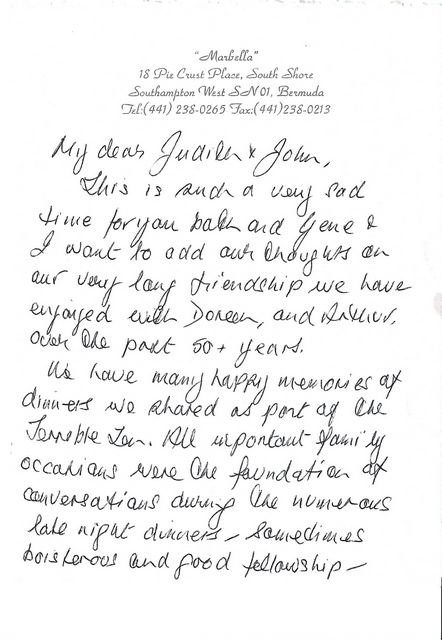 "Marbella"
18 Pie Crust Place, South Shore
Southampton West SN 01, Bermuda
Tel:(441) 238-0265 Fax:(441)238-0213
My dear Judith & John,
This is such a very sad
time for you both and Gene &
I want to add our thoughts on
our very long friendship we have
enjoyed with Doreen, and Arthur,
over the past 50+ years.
We have many happy memories of
dinners we shared as part of the
Terrible Ten. All important family
occasions were the foundation of
conversations during the numerous
late night dinners – sometimes
boisterous and good fellowship –